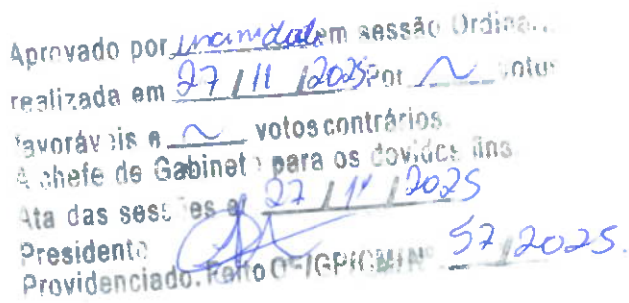 Aprovado por unanimidade em sessão Ordinar
realizada em 27/11/2025 Por ~ votos
favoráveis e ~ votos contrários.
A chefe de Gabinete para os devidos fins
Ata das sessões em 27/11/2025
Presidente
Providenciado. Feito Of/GP/CM/Nº 57/2025.